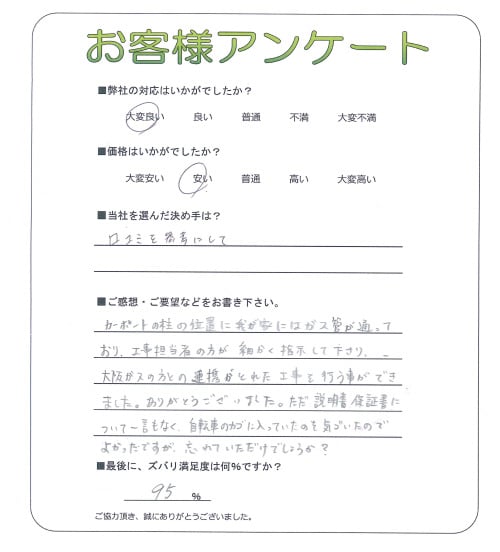 お客様アンケート
■弊社の対応はいかがでしたか？
大変良い 良い 普通 不満 大変不満
■価格はいかがでしたか？
大変安い 安い 普通 高い 大変高い
■当社を選んだ決め手は？
口コミを参考にして
■ご感想・ご要望などをお書き下さい。
カーポートの柱の位置に我が家にはガス管が通って
おり、工事担当者の方が細かく指示して下さり、
大阪ガスの方との連携がとれた工事を行う事ができ
ました。ありがとうございました。ただ説明書保証書に
ついて一言もなく、自転車のカゴに入っていたのを気づいたので
よかったですが、忘れていただけでしょうか？
■最後に、ズバリ満足度は何％ですか？
95 ％
ご協力頂き、誠にありがとうございました。